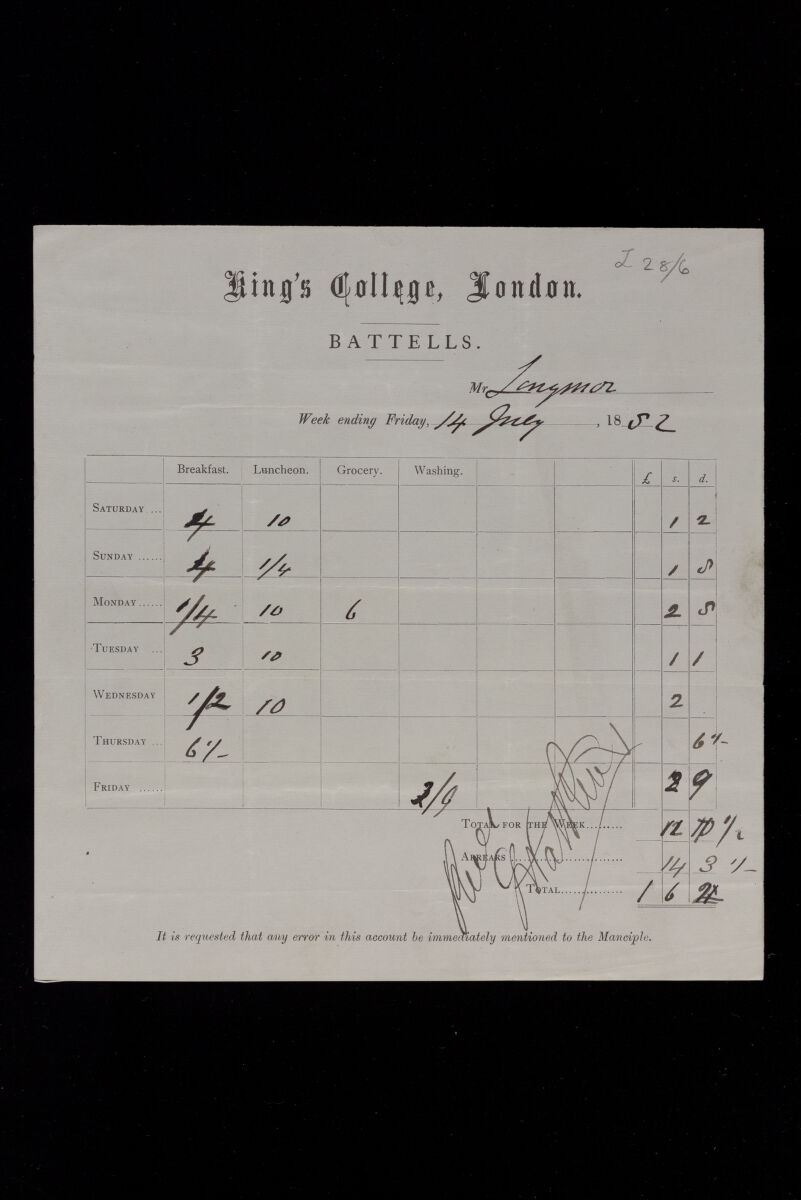 I 28/6
King's College, London.
BATTELLS.
Mr. Longmor
Week ending Friday, 14 July, 1882
Breakfast. Luncheon. Grocery. Washing. £ s. d.
SATURDAY ... 4 10 1 2
SUNDAY ...... 4 1/4 1 8
MONDAY ...... 1/4 10 6 2 8
TUESDAY ... 3 10 1 1
WEDNESDAY 1/2 10 2
THURSDAY ... 6 ½ 6 ½
FRIDAY ...... 2/9 2 9
TOTAL FOR THE WEEK......... 12 10 ½
ARREARS ........................... 14 3 ½
TOTAL............... 1 6 2
It is requested that any error in this account be immediately mentioned to the Manciple.